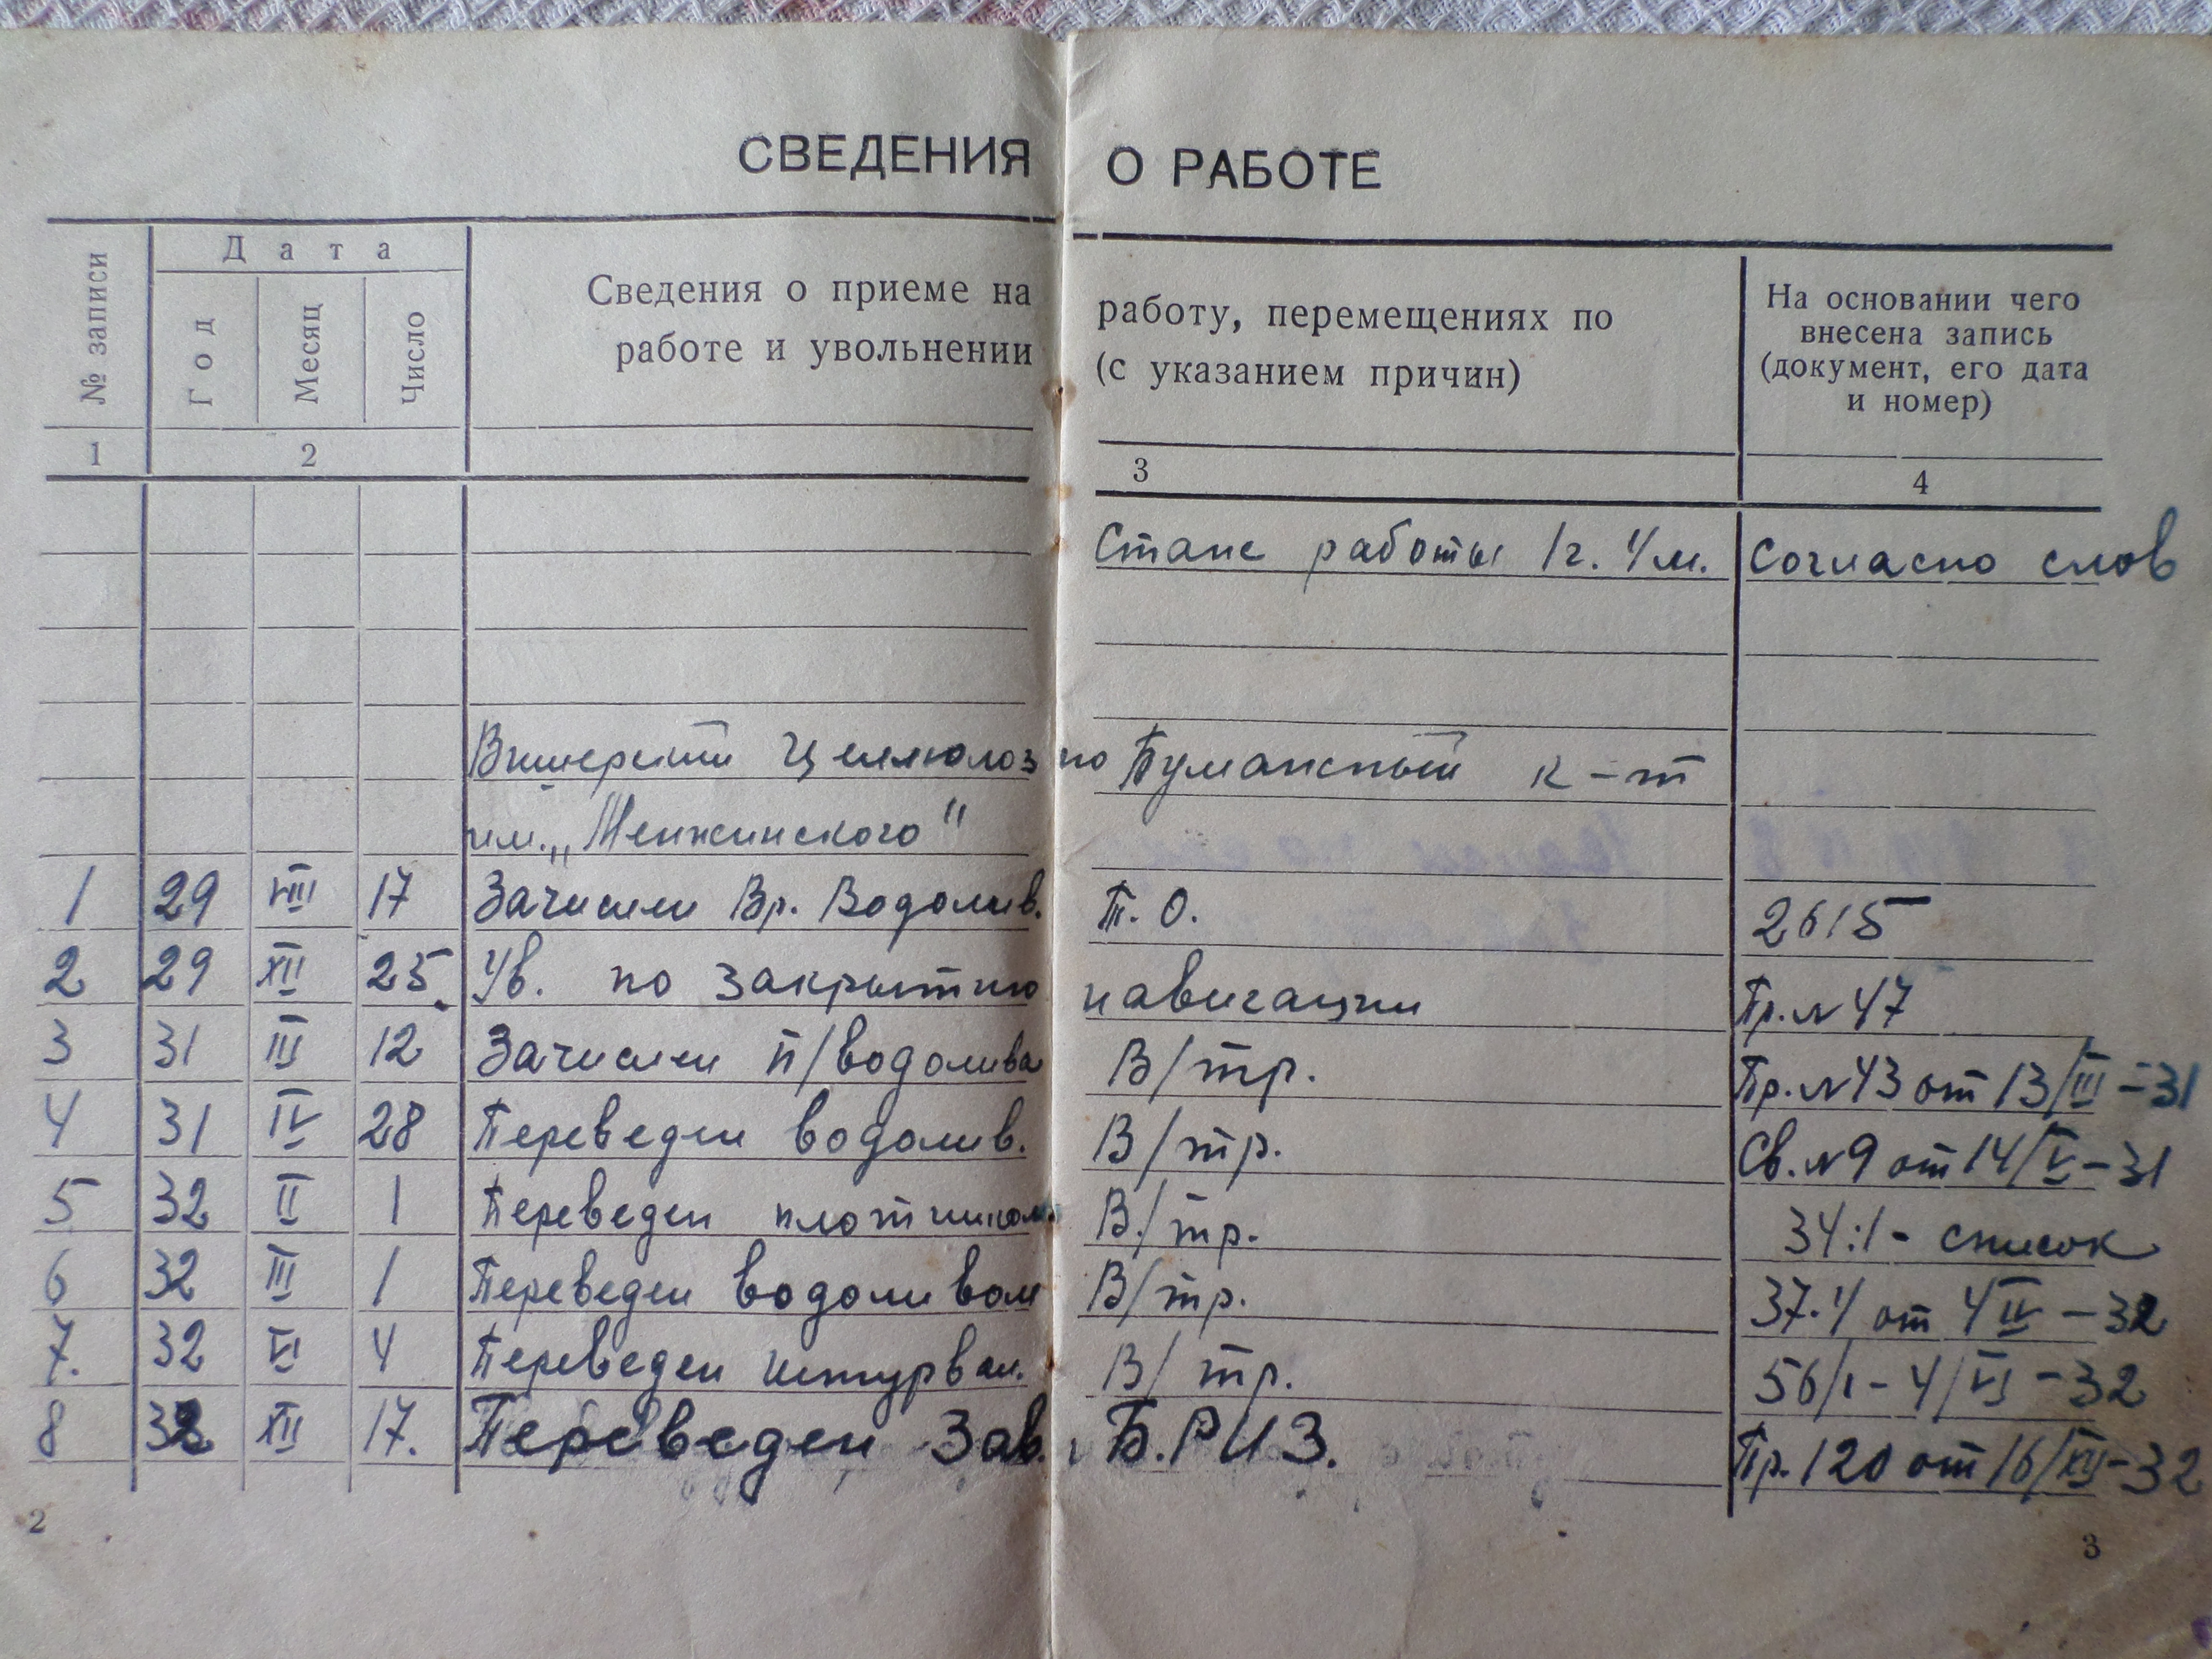 СВЕДЕНИЯ О РАБОТЕ
№ записи
Дата
Год
Месяц
Число
Сведения о приеме на работу, перемещениях по
работе и увольнении (с указанием причин)
На основании чего
внесена запись
(документ, его дата
и номер)
1 2 3 4
Стаж работы 1г. 4м. Согласно слов
Вишерский Целлюлозно Бумажный к-т
им. „Менжинского"
1 29 VIII 17 Зачислен Вр. Водолив. Т. О. 2615
2 29 XII 25. Ув. по закрытию навигации Пр. № 47
3 31 III 12 Зачислен п/водолива В/тр. Пр. № 43 от 13/III-31
4 31 IV 28 Переведен водолив. В/тр. Св. № 9 от 14/V-31
5 32 II 1 Переведен плотником В/тр. 34:1- список
6 32 III 1 Переведен водоливом В/тр. 37.4 от 4 IV -32
7. 32 VI 4 Переведен штурвал. В/тр. 56/1-4/VI-32
8 32 XII 17. Переведен Зав. Б.РИЗ. Пр. 120 от 16/XII-32
2
3